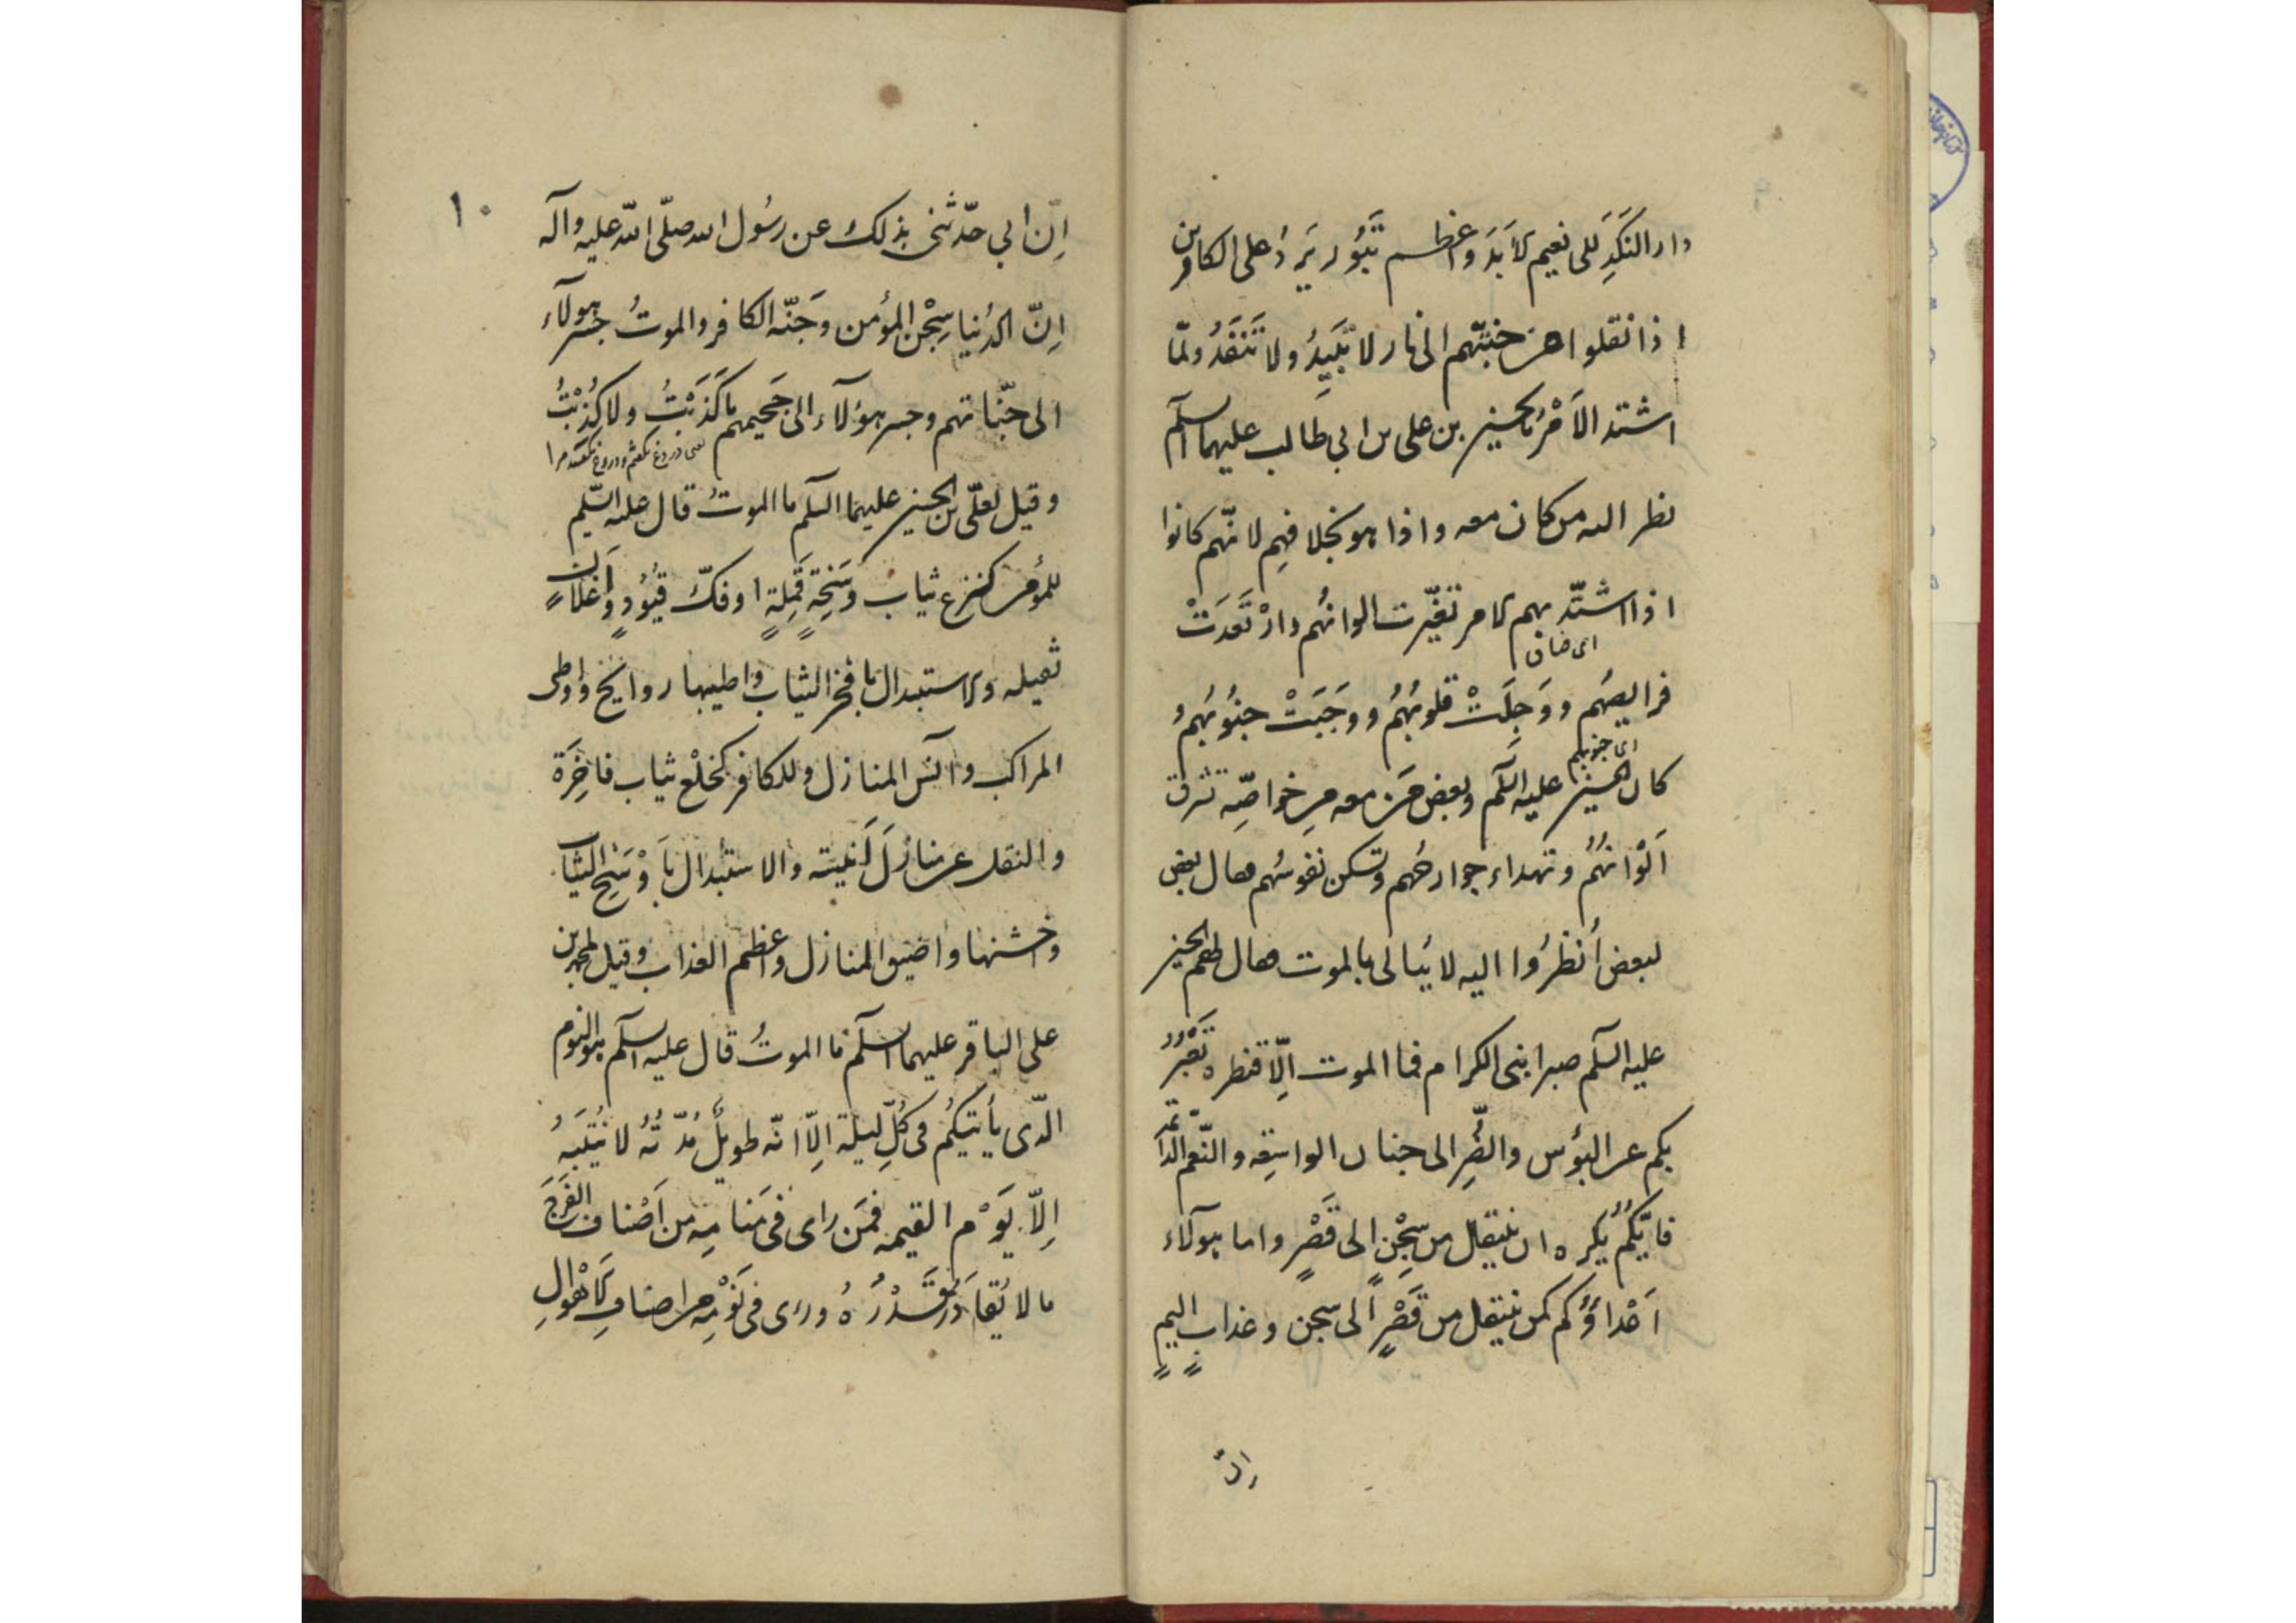 دار النَّكَدِ الى نعيم الابَدَ واعظم ثبُور يَرِدُ على الكافرين
اذا نقلوا من جنّتهم الى نار لا تَبِيدُ ولا تَنْفَدُ ولمّا
اشتد الاَمْرُ بالحسين بن على بن ابي طالب عليهما السلم
نظر اليه من كان معه واذا هو بخلافهِم لانّهم كانوا
اذا اشتَدّ بهم الامر تغيّرت الوانُهم وارْتَعَدَتْ
اى خاف
فرايصهُم ووَجِلَتْ قلوبُهُم ووَجَبَتْ جنُوبُهُم وُ
اى جنوبهم
كان الحسين عليه السَلم وبعض مَن معه مِن خواصِّه تشرق
اَلْوَانُهُم وتهداء جوارحُهم وتسكن نفوسُهم فقال بعض
لبعض اُنظُرُوا اليه لا يُبالى بالموت فقال لهم الحسين
عليه السلم صبرا بنى الكرام فما الموت اِلّا قنطره تَعْبُرُ
بكم عن البؤس والضُّرِّ الى جنان الواسِعه والنّعم الدّائمة
فايّكُمُ يُكره ان ينتقل من سِجْنٍ الى قَصْرٍ واما هولآء
اَعْداؤكم كمن ينتقل من قَصْرٍ الى سجن وعذابٍ اليمٍ
انّ
١٠
اِنّ ابي حدّثنى بذلك عن رسُول الله صلّى الله عليه وآله
اِنّ الدُنيا سِجْن المؤمن وجَنّه الكافر والموتُ جسر هولآء
الى جنّاتهم وجسر هؤلآء الى جَحيمهم ما كَذَبْتُ ولا كُذِبْتُ
يعنى دروغ نگفتم ودروغ نگفتند مرا
وقيل لعلىّ بن الحسين عليهما السلم ما الموتُ قال عليه السّلم
للمؤمن كنزع ثياب وَسِخَةٍ قَمِلَةٍ او فكّ قيُوُدٍ واَغلالٍ
ثقيله والاستبدال بافخر الثياب واطيبها روايح واوطى
المراكب وآنس المنازل وللكافر كخلْع ثياب فاخِرَة
والنقل عن منازلَ اَنيسة والاستبدال باَوْسَخِ الثياب
واخشنها واضيق المنازل واعظم العذاب وقيل لمحمد بن
على الباقر عليهما السلم ما الموتُ قال عليه السلم هو النوم
الّذى يأتيكُم فى كُلّ ليلة اِلّا انّه طويلٌ مُدّتُهُ لا يُنتَبَهُ
اِلاّ يَوْم القيمه فمَن راى فى مَنامِه من اَصْناف الفَرَحَ
ما لا يُقادَرُ قَدْرُهُ وراى فى نَوْمِه من اصنافِ الاَهْوالِ